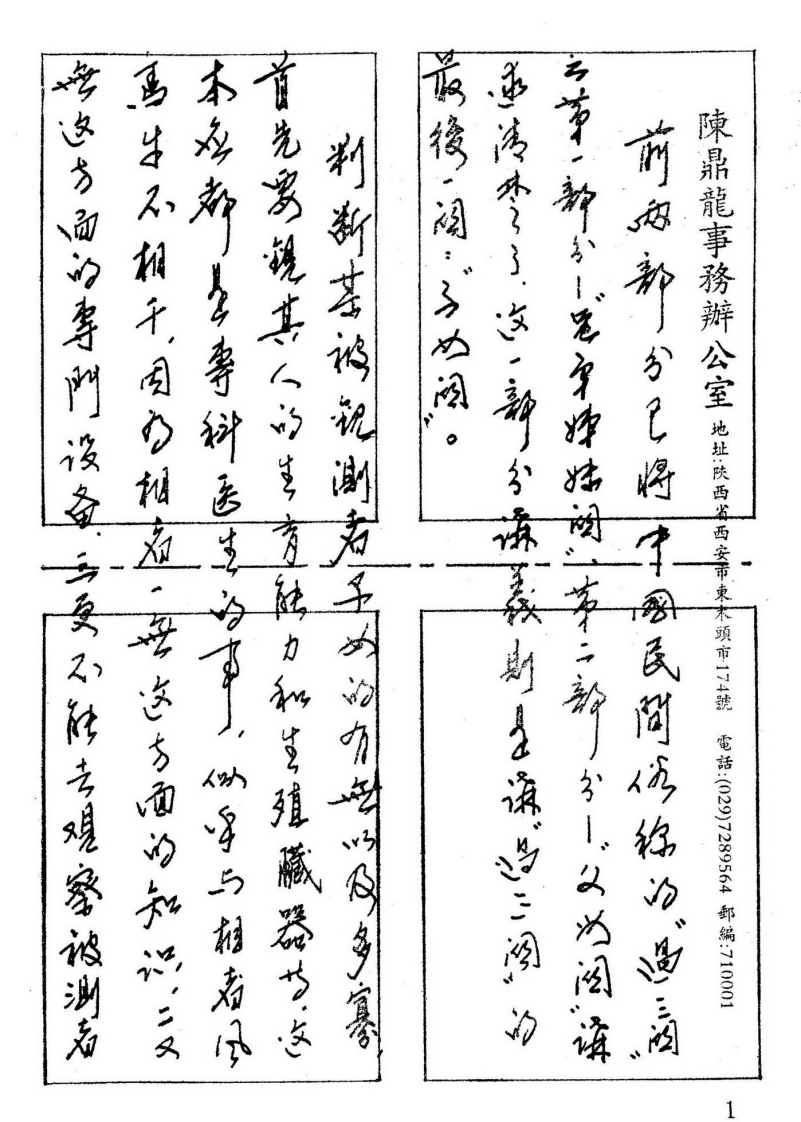 陳鼎龍事務辦公室 地址:陕西省西安市東木頭市174號 電話:(029)7289564 郵編:710001
前两部分已将中國民間俗稱的"過三關"
之第一部分—"兄弟姊妹關"、第二部分—"父母關"講
述清楚了.这一部分講義則是講"過三關"的
最後一關:"子女關"。
判断某被觀測者子女的有無以及多寡,
首先要觀其人的生育能力和生殖臟器等.这
本应都是專科医生的事,似乎与相者风
馬牛不相干,因为相者一無这方面的知识,二又
無这方面的專門设备,三更不能去观察被測者
1